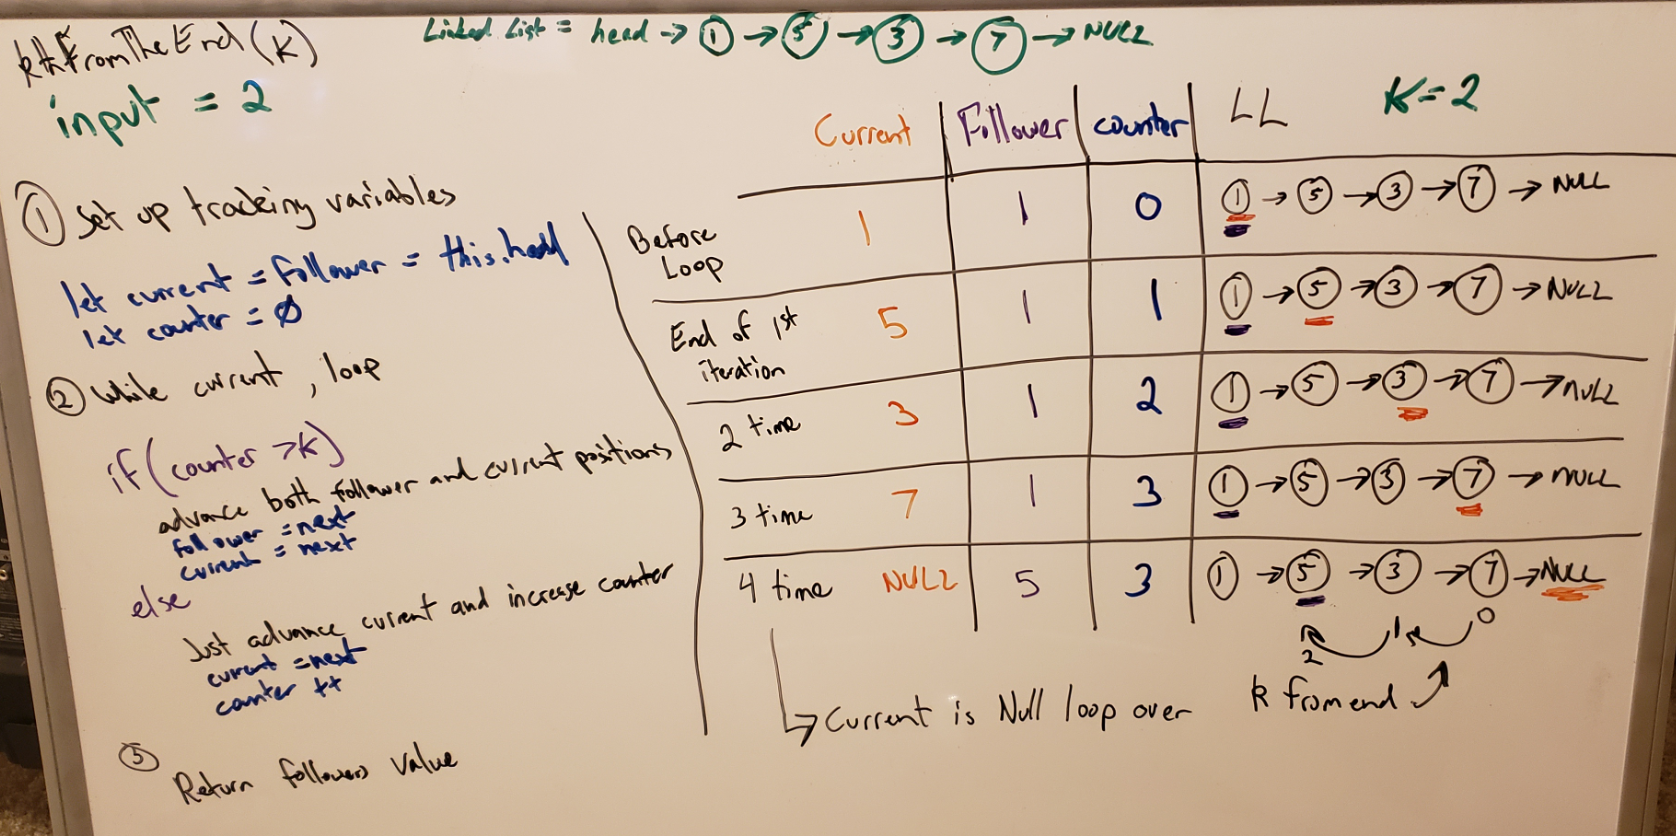 kthFromTheEnd(k)
Linked List = head → 1 → 5 → 3 → 7 → NULL
input = 2
K = 2
① Set up tracking variables
let current = follower = this.head
let counter = 0
② While current, loop
if (counter > k)
advance both follower and current positions
follower = next
current = next
else
Just advance current and increase counter
current = next
counter ++
③ Return followers value
Current Follower counter LL
Before Loop 1 1 0 1 → 5 → 3 → 7 → NULL
End of 1st iteration 5 1 1 1 → 5 → 3 → 7 → NULL
2 time 3 1 2 1 → 5 → 3 → 7 → NULL
3 time 7 1 3 1 → 5 → 3 → 7 → NULL
4 time NULL 5 3 1 → 5 → 3 → 7 → NULL
2 1 0
Current is Null loop over
k from end